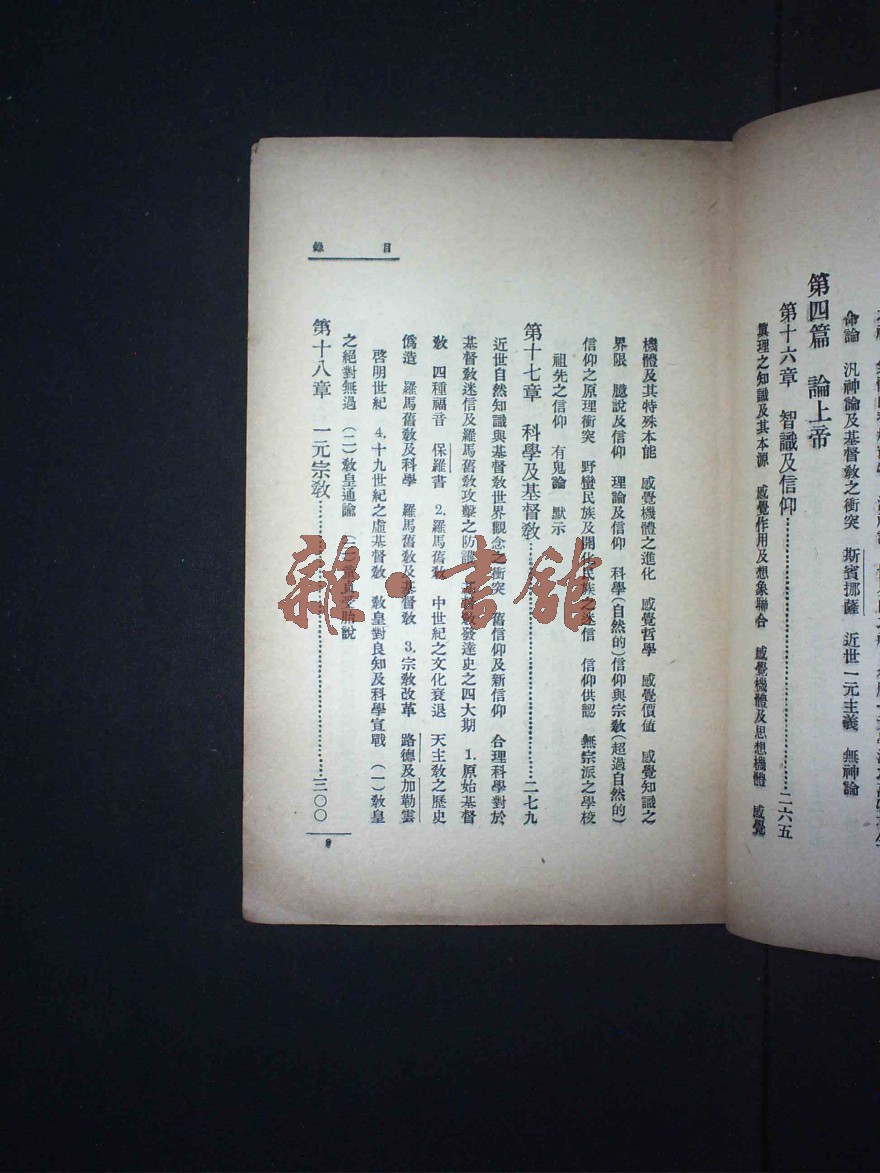 命論　汎神論及基督教之衝突　斯賓挪薩　近世一元主義　無神論
第四篇　論上帝
第十六章　智識及信仰……二六五
眞理之知識及其本源　感覺作用及想象聯合　感覺機體及思想機體　感覺
目錄
機體及其特殊本能　感覺機體之進化　感覺哲學　感覺價值　感覺知識之
界限　臆說及信仰　理論及信仰　科學(自然的)信仰與宗教(超過自然的)
信仰之原理衝突　野蠻民族及開化民族之迷信　信仰供認　無宗派之學校
祖先之信仰　有鬼論　默示
第十七章　科學及基督教……二七九
近世自然知識與基督教世界觀念之衝突　舊信仰及新信仰　合理科學對於
基督教迷信及羅馬舊教攻擊之防護　基督教發達史之四大期　1.原始基督
教　四種福音　保羅書　2.羅馬舊教　中世紀之文化衰退　天主教之歷史
僞造　羅馬舊教及科學　羅馬舊教及基督教　3.宗教改革　路德及加勒雲
啓明世紀　4.十九世紀之虛基督教　教皇對良知及科學宣戰　(一)教皇
之絕對無過　(二)教皇通諭　(三)童貞受胎說
第十八章　一元宗教……三〇〇
9
雜·書館